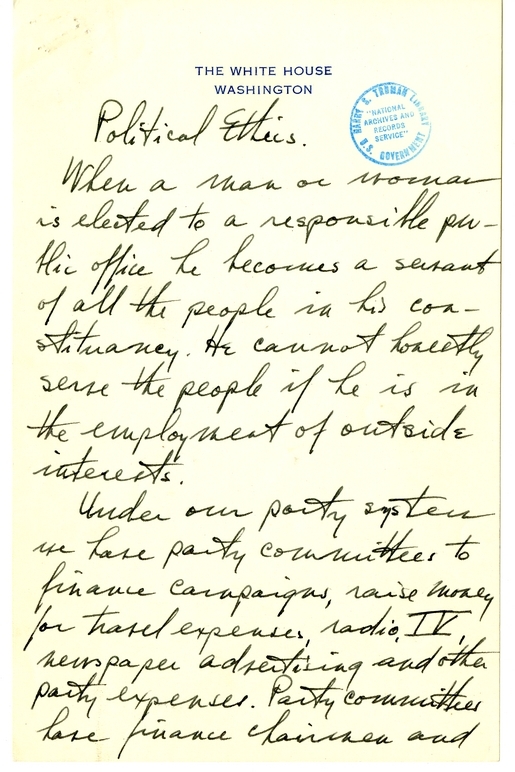 THE WHITE HOUSE
WASHINGTON
HARRY S. TRUMAN LIBRARY
"NATIONAL
ARCHIVES AND
RECORDS
SERVICE"
U.S. GOVERNMENT
Political Ethics.
When a man or woman
is elected to a responsible pu-
blic office he becomes a servant
of all the people in his con-
stituancy. He cannot honestly
serve the people if he is in
the employment of outside
interests.
Under our party system
we have party committees to
finance campaigns, raise money
for travel expenses, radio, TV,
newspaper advertising and other
party expenses. Party committees
have finance chairmen and